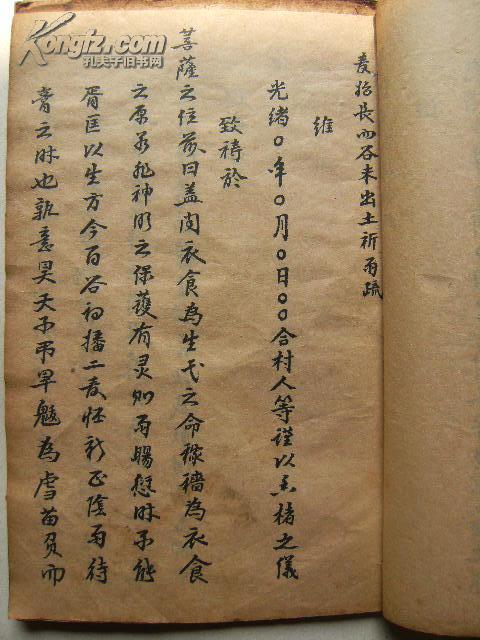 Kongfz.com
孔夫子旧书网
麦將長而谷未出土祈雨疏
維
光緒〇年〇月〇日〇〇合村人等謹以香楮之儀
致祷於
菩薩之位前曰盖闻衣食為生民之命稼穡為衣食
之原若非神明之保護有灵则雨暘愆时不能
胥匡以生方今百谷初播二麦怀新正陰雨待
膏之时也孰意昊天不弔旱魃為虐苗頁而